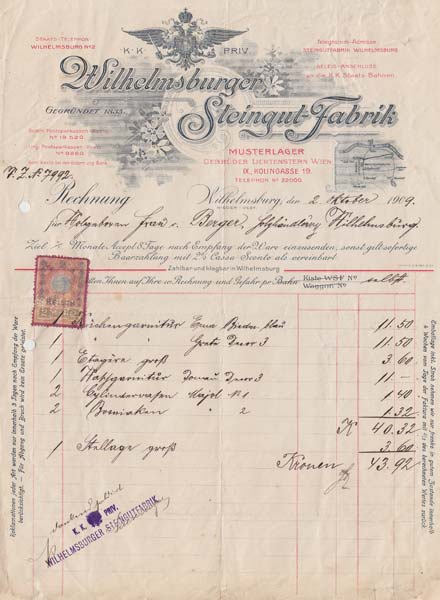 STAATS-TELEPHON
WILHELMSBURG No 2
K. K. PRIV.
Telegramm-Adresse:
STEINGUTFABRIK WILHELMSBURG
GELEIS-ANSCHLUSS
an die K.K. Staats Bahnen.
Wilhelmsburger
Steingut-Fabrik
GEGRÜNDET 1835.
No 19.520
No 9260
MUSTERLAGER
GEBRÜDER LICHTENSTERN WIEN
IX, KOLINGASSE 19.
TELEPHON No 22000.
Rechnung
Wilhelmsburg, den 2 Oktober 1909.
für Frau v. Berger, Wilhelmsburg
Ziel Monate Accept 8 Tage nach Empfang der Ware einzusenden, sonst gilt sofortige
Baarzahlung mit 2% Cassa Sconto als vereinbart
Zahlbar und klagbar in Wilhelmsburg
Ihnen auf Ihre Rechnung und Gefahr pr. Bahn Kiste WSF No
Waggon No
1 Erna 11.50
1 Greta Decor 3 11.50
1 Etagère groß 3.60
1 Waschgarnitur Donau Decor 3 11.—
2 Cylindervasen 1.40
2 2 1.32
K 40.32
1 Stellage groß 3.60
Kronen 43.92
K. K. PRIV.
WILHELMSBURGER STEINGUTFABRIK
Reklamationen jeder Art werden nur innerhalb 3 Tagen nach Empfang der Ware
berücksichtigt. — Für Abgang und Bruch wird kein Ersatz geleistet.
Emballage inkl. Stroh nehmen wir nur franko in gutem Zustande innerhalb
4 Wochen vom Tage der Faktura mit ⅔ des berechneten Wertes zurück.